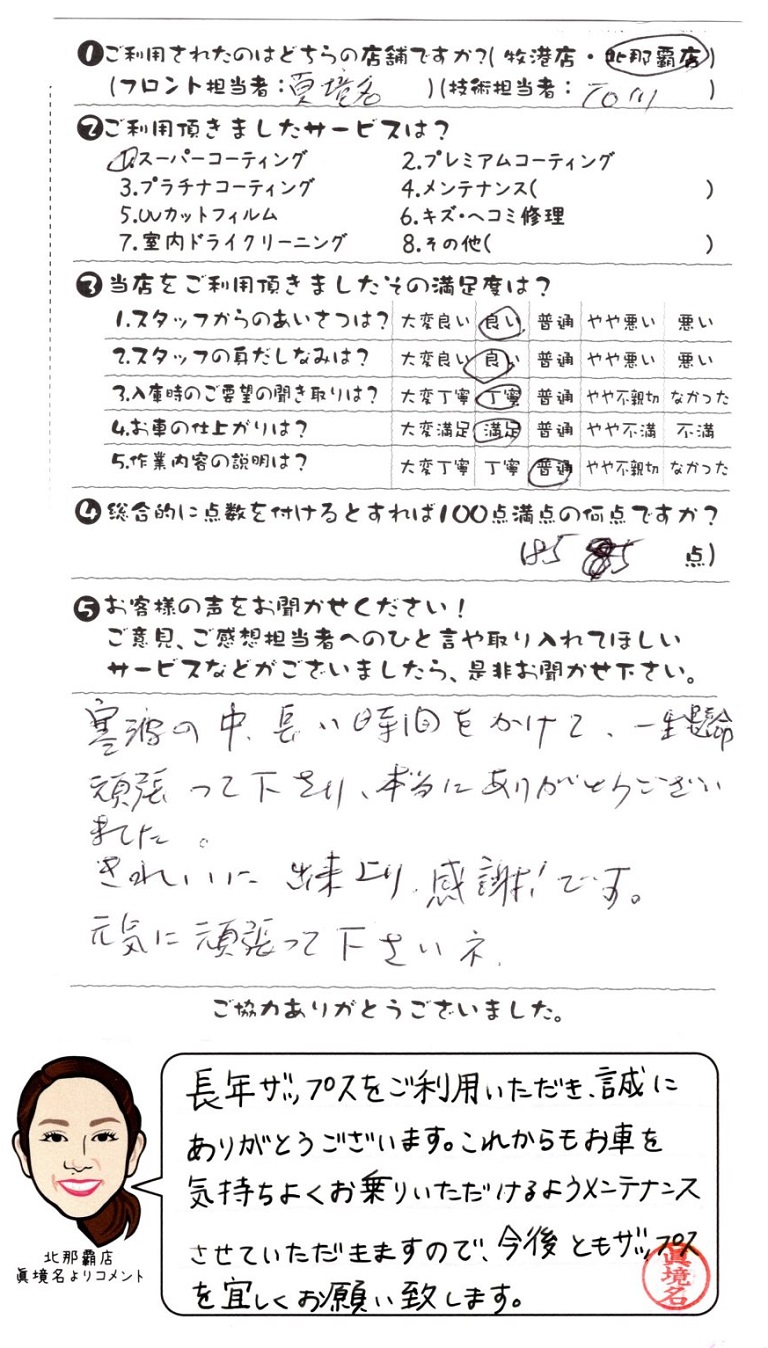 ❶ご利用されたのはどちらの店舗ですか?(牧港店・北那覇店)
(フロント担当者:真境名 )(技術担当者: )
❷ご利用頂きましたサービスは?
1.スーパーコーティング 2.プレミアムコーティング
3.プラチナコーティング 4.メンテナンス( )
5.UVカットフィルム 6.キズ・ヘコミ修理
7.室内ドライクリーニング 8.その他( )
❸当店をご利用頂きましたその満足度は?
1.スタッフからのあいさつは? 大変良い 良い 普通 やや悪い 悪い
2.スタッフの身だしなみは? 大変良い 良い 普通 やや悪い 悪い
3.入庫時のご要望の聞き取りは? 大変丁寧 丁寧 普通 やや不親切 なかった
4.お車の仕上がりは? 大変満足 満足 普通 やや不満 不満
5.作業内容の説明は? 大変丁寧 丁寧 普通 やや不親切 なかった
❹総合的に点数を付けるとすれば100点満点の何点ですか?
点)
❺お客様の声をお聞かせください!
ご意見、ご感想担当者へのひと言や取り入れてほしい
サービスなどがございましたら、是非お聞かせ下さい。
寒波の中、長い時間をかけて、一生懸命
頑張って下さり、本当にありがとうござい
ました。
きれいに出来上り、感謝です。
元気に頑張って下さいネ.
ご協力ありがとうございました。
長年ザップスをご利用いただき、誠に
ありがとうございます。これからもお車を
気持ちよくお乗りいただけるようメンテナンス
させていただきますので、今後ともザップス
を宜しくお願い致します。
眞境名
北那覇店
眞境名よりコメント